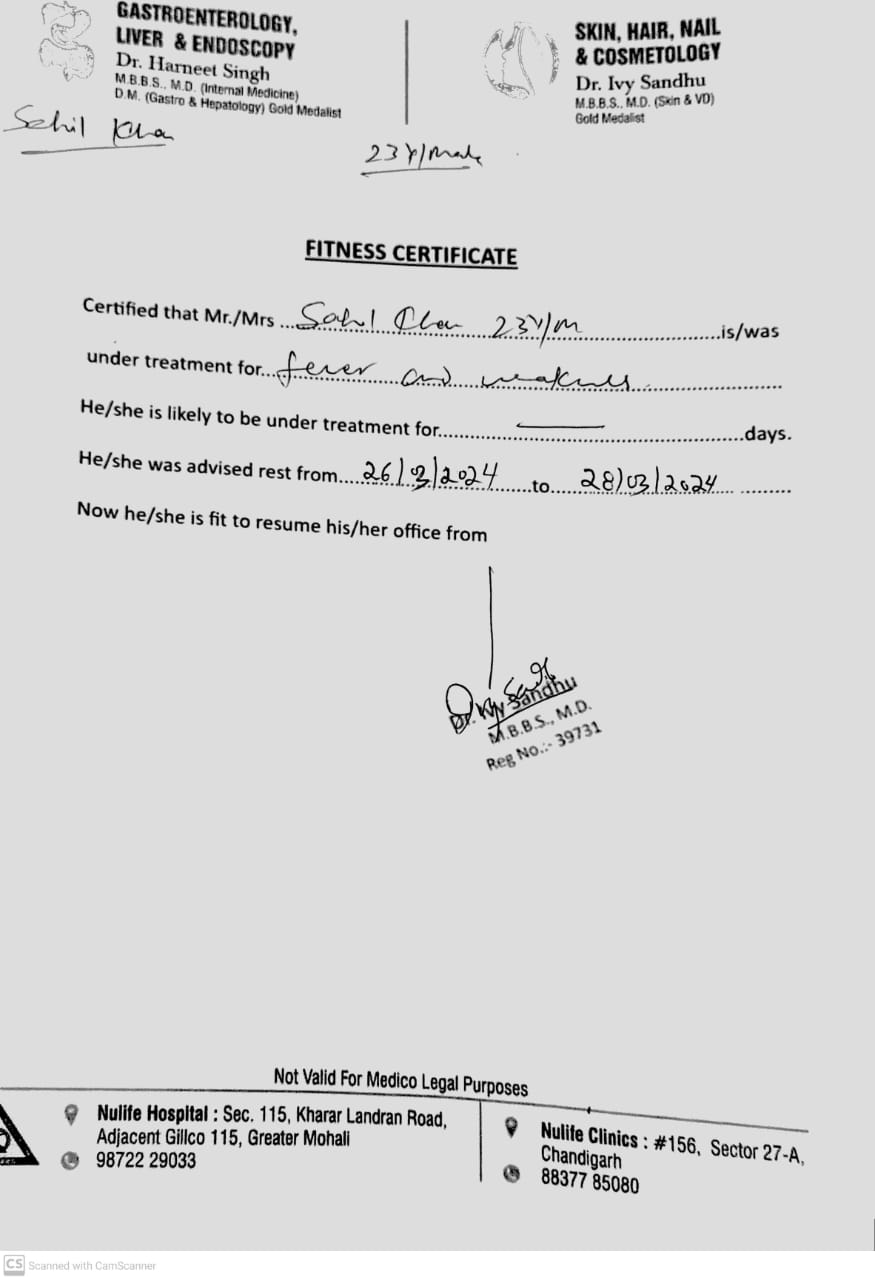 GASTROENTEROLOGY,
LIVER & ENDOSCOPY
Dr. Harneet Singh
M.B.B.S., M.D. (Internal Medicine)
D.M. (Gastro & Hepatology) Gold Medalist
SKIN, HAIR, NAIL
& COSMETOLOGY
Dr. Ivy Sandhu
M.B.B.S., M.D. (Skin & VD)
Gold Medalist
Sahil Khan
23Y/Male
FITNESS CERTIFICATE
Certified that Mr./Mrs ... Sahil Khan 23Y/M ... is/was
under treatment for... fever and weakness ...
He/she is likely to be under treatment for... — ...days.
He/she was advised rest from.... 26/03/2024 ....to.... 28/03/2024 ....
Now he/she is fit to resume his/her office from
Dr. Ivy Sandhu
M.B.B.S., M.D.
Reg No.:- 39731
Not Valid For Medico Legal Purposes
Nulife Hospital : Sec. 115, Kharar Landran Road,
Adjacent Gillco 115, Greater Mohali
98722 29033
Nulife Clinics : #156, Sector 27-A,
Chandigarh
88377 85080
CS Scanned with CamScanner